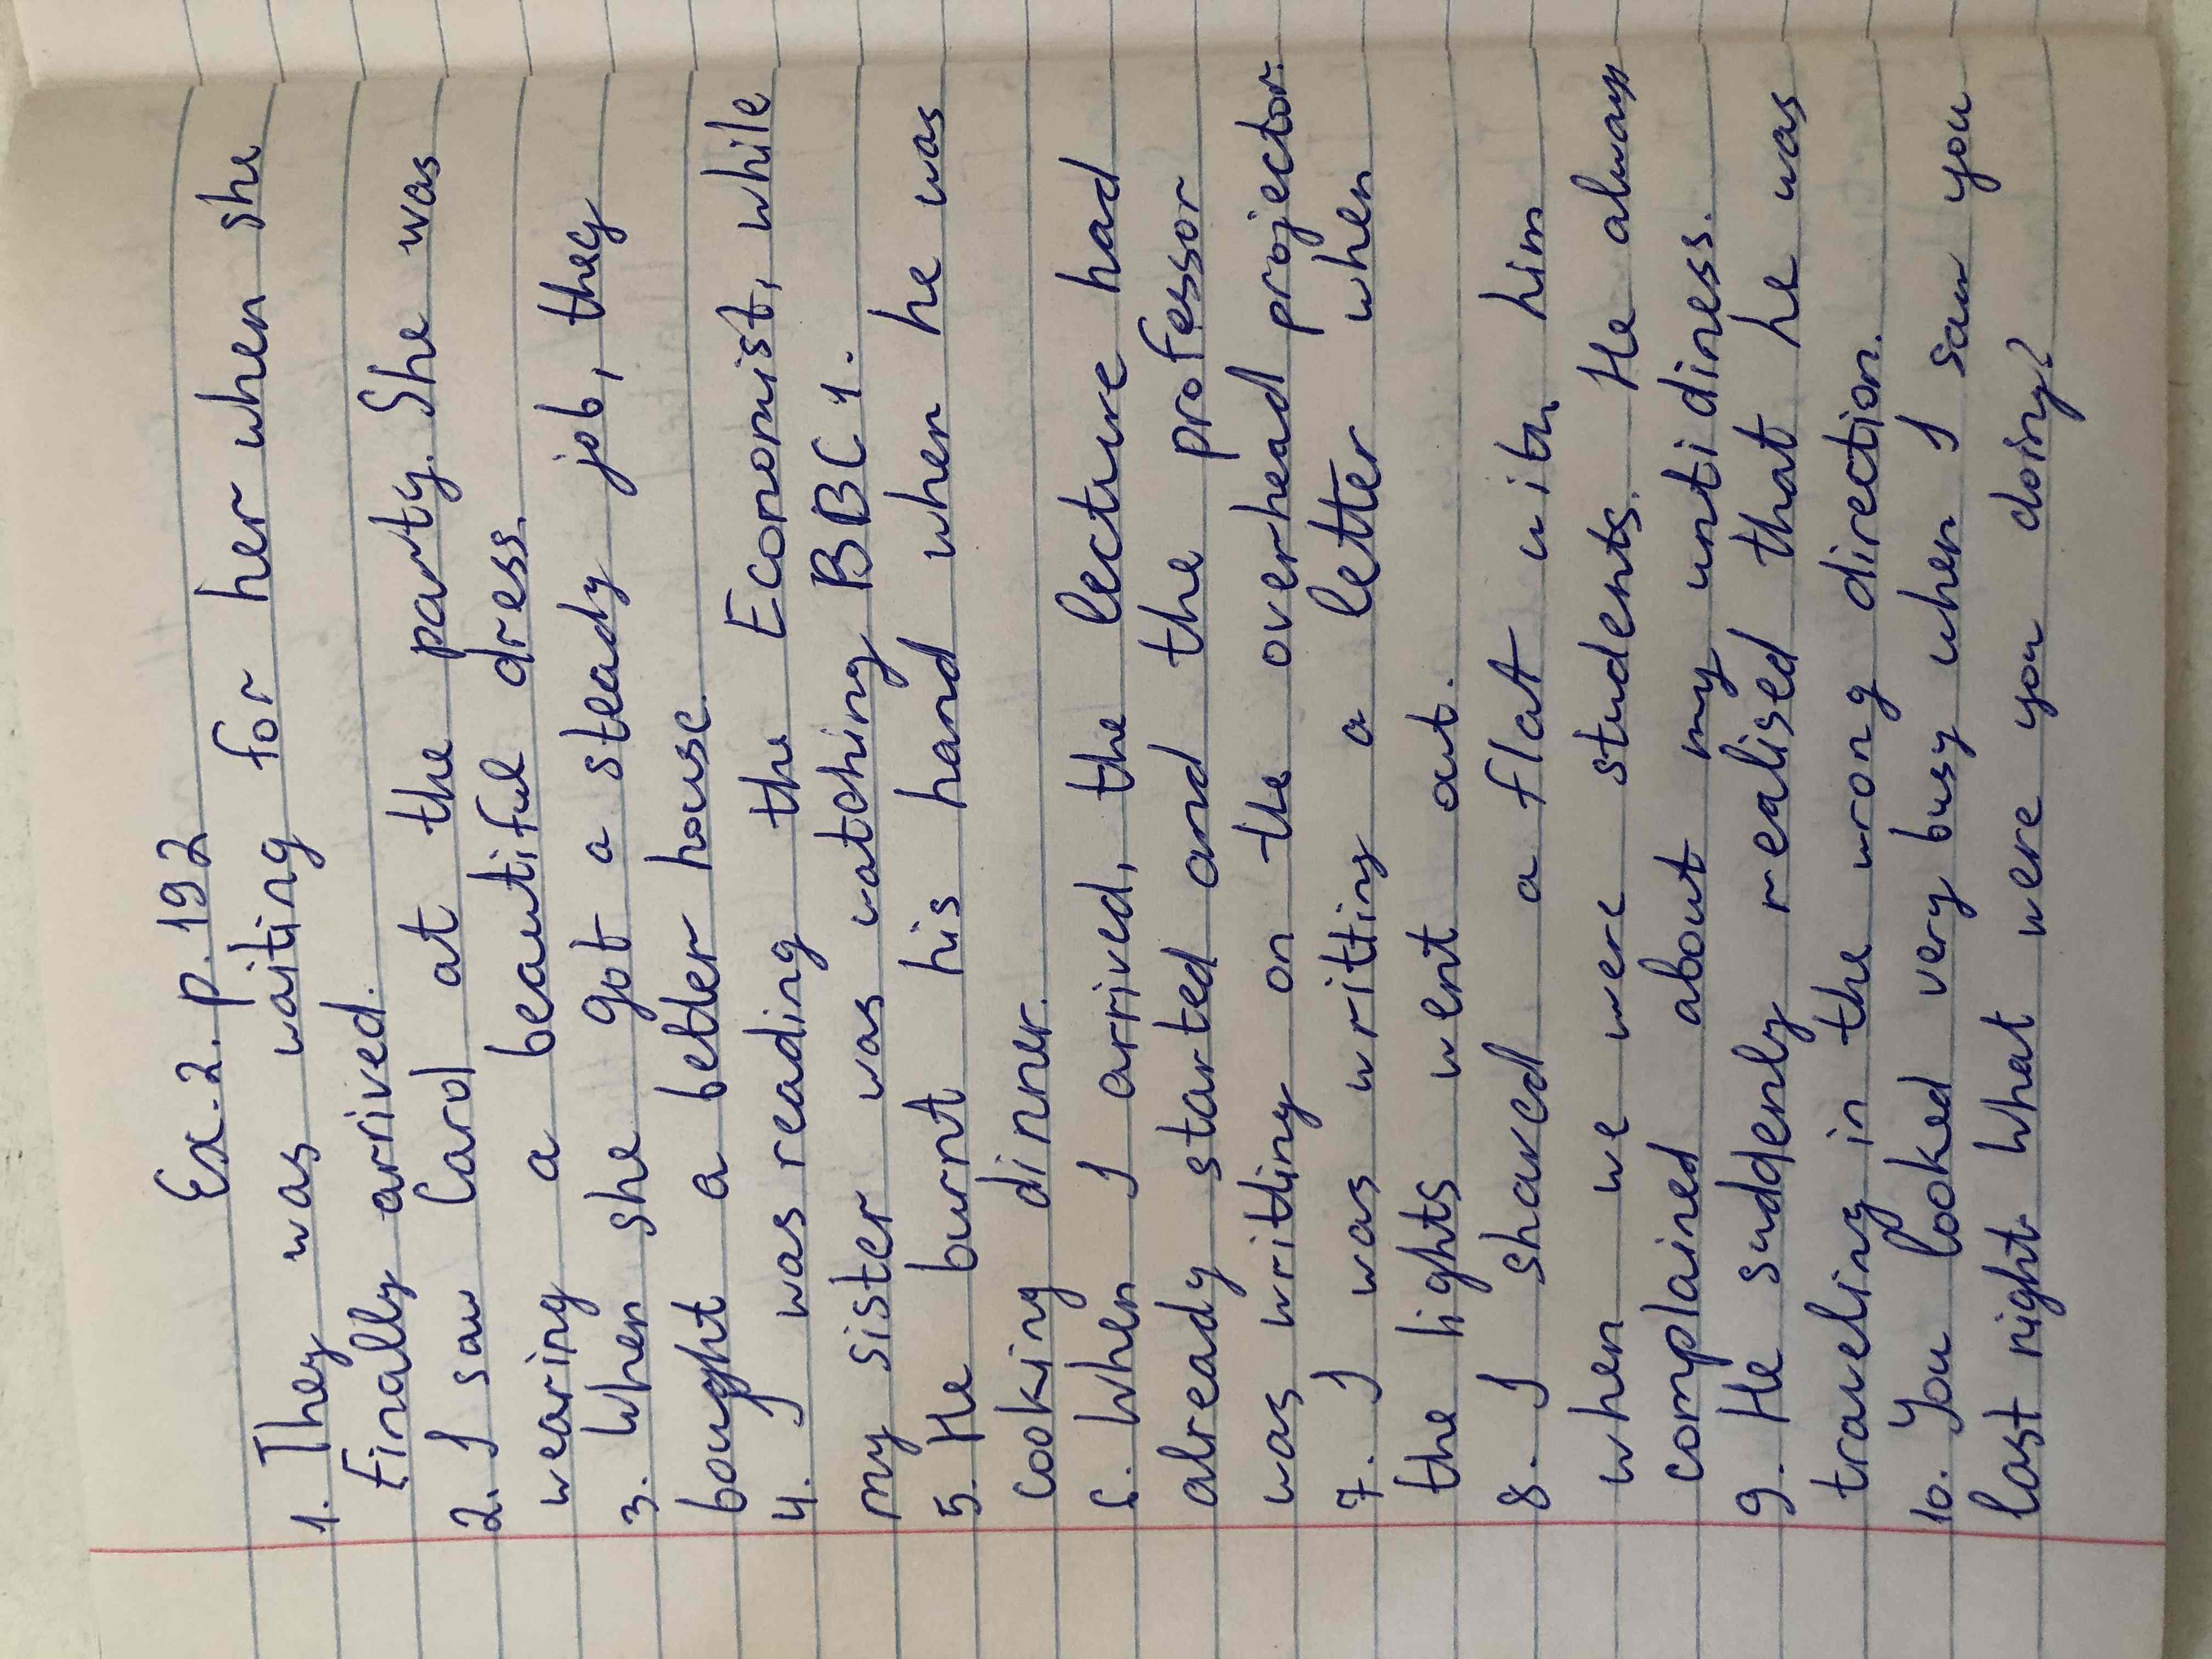 Ex. 2. p. 192
1. They was waiting for her when she
finally arrived.
2. I saw Carol at the party. She was
wearing a beautiful dress.
3. When she got a steady job, they
bought a better house.
4. I was reading the Economist, while
my sister was watching BBC 1.
5. He burnt his hand when he was
cooking dinner.
6. When I arrived, the lecture had
already started and the professor
was writting on the overhead projector.
7. I was writting a letter when
the lights went out.
8. I shared a flat with him
when we were students. He always
complained about my untidiness.
9. He suddenly realised that he was
traveling in the wrong direction.
10. You looked very busy when I saw you
last night. What were you doing?